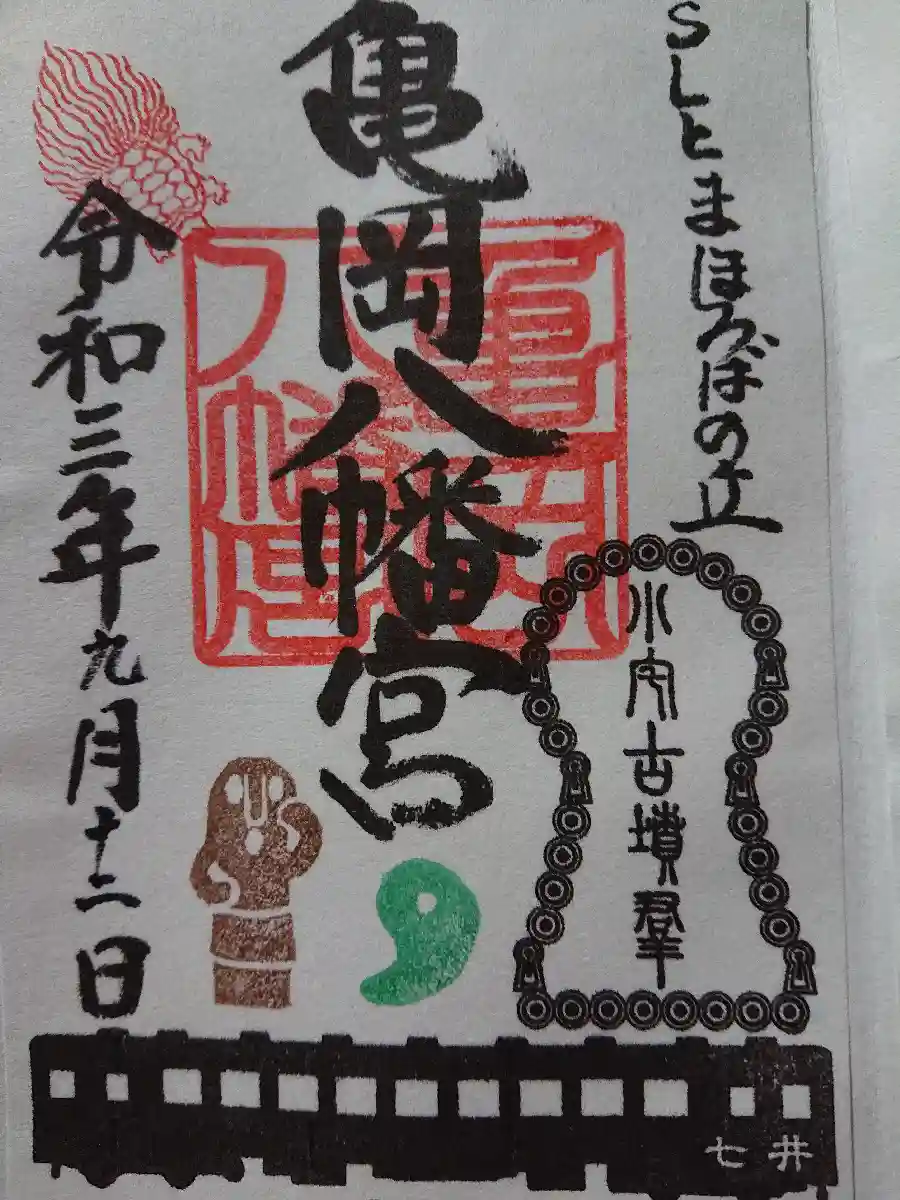 SLとまほろばの丘
亀岡八幡宮
亀岡
八幡宮
小宅古墳群
令和三年九月十二日
七井